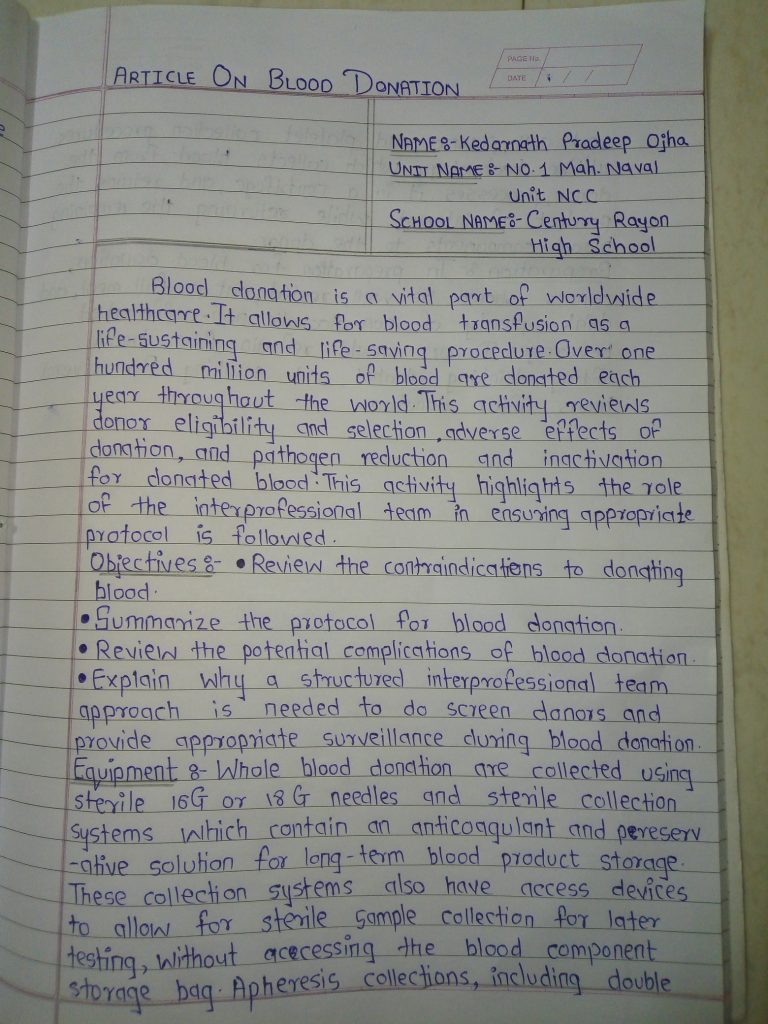 PAGE No.
DATE / /
ARTICLE ON BLOOD DONATION
NAME:- Kedarnath Pradeep Ojha
UNIT NAME:- NO. 1 Mah. Naval
Unit NCC
SCHOOL NAME:- Century Rayon
High School
Blood donation is a vital part of worldwide
healthcare. It allows for blood transfusion as a
life-sustaining and life-saving procedure. Over one
hundred million units of blood are donated each
year throughout the world. This activity reviews
donor eligibility and selection, adverse effects of
donation, and pathogen reduction and inactivation
for donated blood. This activity highlights the role
of the interprofessional team in ensuring appropriate
protocol is followed.
Objectives:- • Review the contraindications to donating
blood.
• Summarize the protocol for blood donation.
• Review the potential complications of blood donation.
• Explain why a structured interprofessional team
approach is needed to do screen donors and
provide appropriate surveillance during blood donation.
Equipment:- Whole blood donation are collected using
sterile 16G or 18G needles and sterile collection
systems which contain an anticoagulant and pereserv
-ative solution for long-term blood product storage.
These collection systems also have access devices
to allow for sterile sample collection for later
testing, without acecessing the blood component
storage bag. Apheresis collections, including double